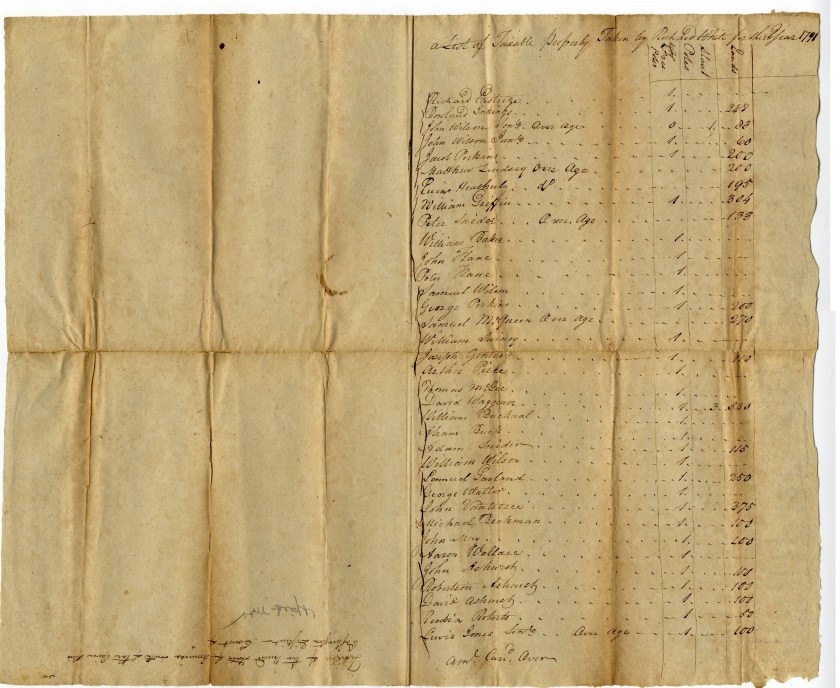 a List of Taxable Property Taken by Richard White for the Year 1791
Free Poles Black Poles Lands
Richard 1
Rowland Jenkins 1 248
John Wilson Senr. Over age 0 1 83
John Wilson Junr. 1 60
Jacob Perkins 1 200
Matthew Lindsey Over Age 200
Evins Heatherly Do 195
William Griffin 1 304
Peter Snider Over Age 133
William Baker 1
John Hane 1
Peter Hane 1
Samuel Wilson 1
George Perkins 1 200
Samuel McQueen Over age 270
William 1
Joseph Gentry 1 110
Arthur Pirce 1
Thomas McGee 1
David Waggoner 1 3 540
William Bucknal 1
Abram Buck 1
Adam Snider 1 115
William Wilson 1
Samuel Garland 1 250
George Waller 1
John Vanteece 1 375
Michael Beekman 1 150
John May 1 200
Aaron Wallace 1
John Ashurst 1 100
Robertson Ashurst 1 100
David Ashurst 1 100
Reubin Roberts 1 50
Lewis Jones Senr. Over Age 1 100
Amt. Card. Over